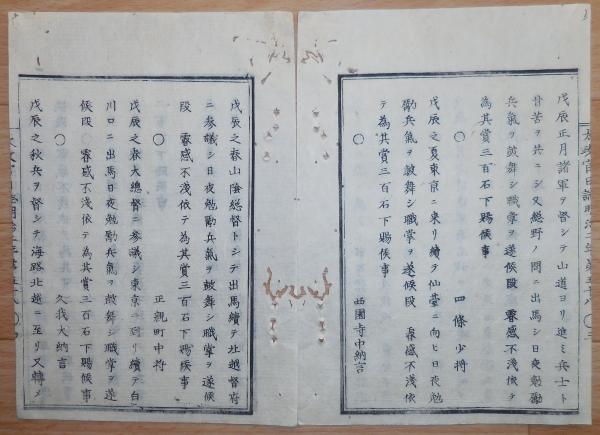 戊辰正月諸軍ヲ督シテ山道ヨリ進ミ兵士ト
甘苦ヲ共ニシ又總野ノ間ニ出馬シ日夜勉勵
兵氣ヲ鼓舞シ職掌ヲ遂候段 睿感不淺依テ
為其賞三百石下賜候事
○ 四條少将
戊辰之夏東京ニ来リ續テ仙臺ニ向ヒ日夜勉
勵兵氣ヲ鼓舞シ職掌ヲ遂候段 睿感不淺依
テ為其賞三百石下賜候事
○ 西園寺中納言
戊辰之春山陰総督トシテ出馬續テ北越督府
ニ參議シ日夜勉勵兵氣ヲ鼓舞シ職掌ヲ遂候
段 睿感不淺依テ為其賞三百石下賜候事
○ 正親町中将
戊辰之春大總督ニ參議シ東京ニ到リ續テ白
川口ニ出馬日夜勉勵兵氣ヲ鼓舞シ職掌ヲ遂
候段 睿感不淺依テ為其賞三百石下賜候事
○ 久我大納言
戊辰之秋兵ヲ督シテ海路北越ニ至リ又轉メ